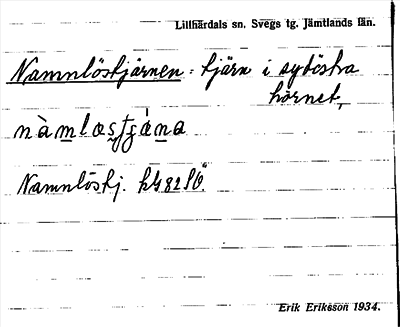 Lillhärdals sn. Svegs tg. Jämtlands län.
Namnlöstjärnen : tjärn i sydöstra
hörnet,
Namnlöstj.
Erik Eriksson 1934.